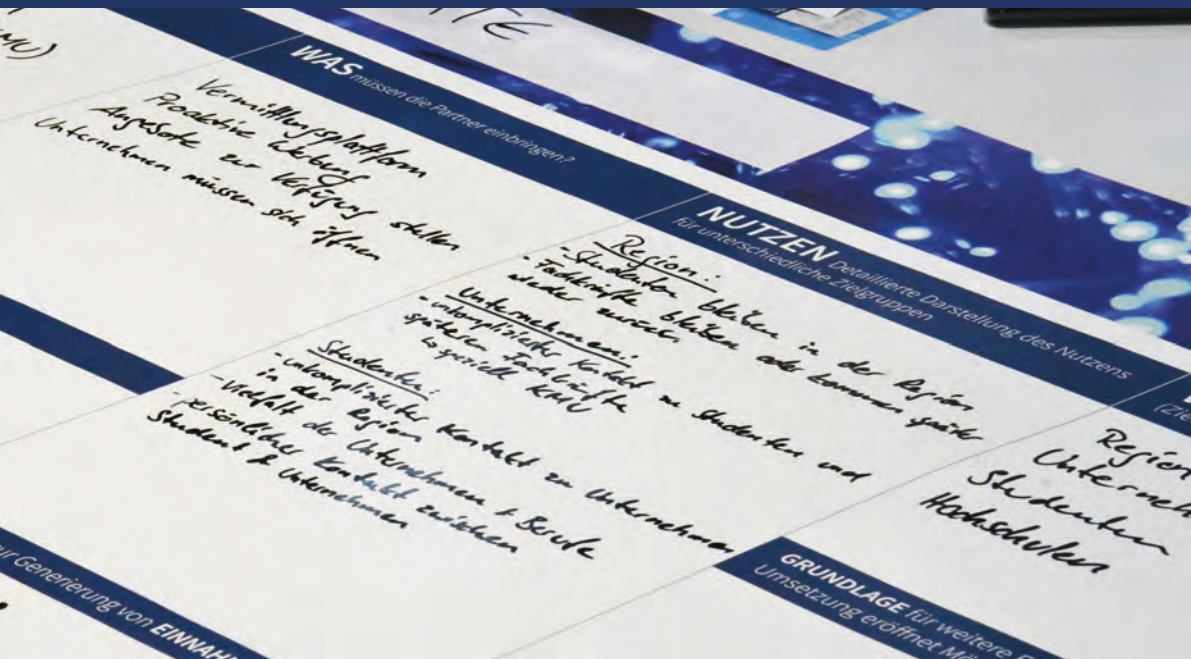 MU)
TE
WAS müssen die Partner einbringen?
Vermittlungsplattform
Proaktive Werbung
Angebote zur Verfügung stellen
Unternehmen müssen sich öffnen
NUTZEN Detaillierte Darstellung des Nutzens
für unterschiedliche Zielgruppen
Region:
- Studenten bleiben in der Region
- Fachkräfte bleiben oder kommen später
wieder zurück
Unternehmen:
- unkomplizierter Kontakt zu Studenten und
späteren Fachkräfte
speziell KMU
Studenten:
- unkomplizierter Kontakt zu Unternehmen
in der Region
- Vielfalt der Unternehmen & Berufe
- persönlicher Kontakt zwischen
Student & Unternehmen
(Zie
Region
Unterneh
Studenten
Hochschulen
ur Generierung von EINNAH
GRUNDLAGE für weitere
Umsetzung eröffnet Mö